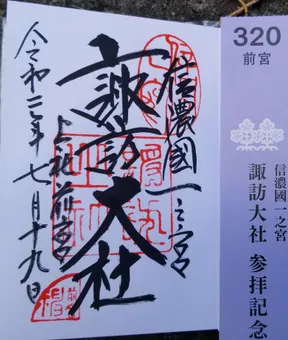 信濃國一之宮
諏訪大社
上社前宮
令和三年七月十九日
320
前宮
信濃國一之宮
諏訪大社 参拝記念